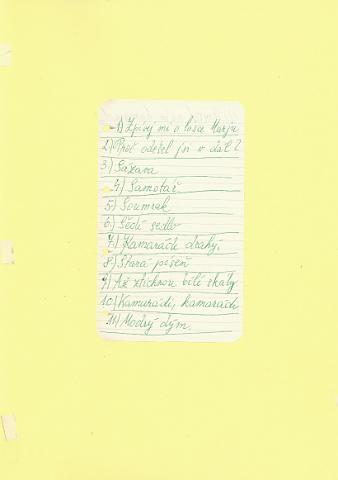 1) Zpívej mi o lásce Marju
2.) Proč odešel jsi v dál?
3.) Sázava
4.) Samotář
5.) Soumrak
6.) Šedé sedlo
7.) Kamarádi drahý.
8.) Stará píseň
9.) Až ztichnou bílé skály
10.) Kamarádi, kamarádi
11.) Modrý dým.